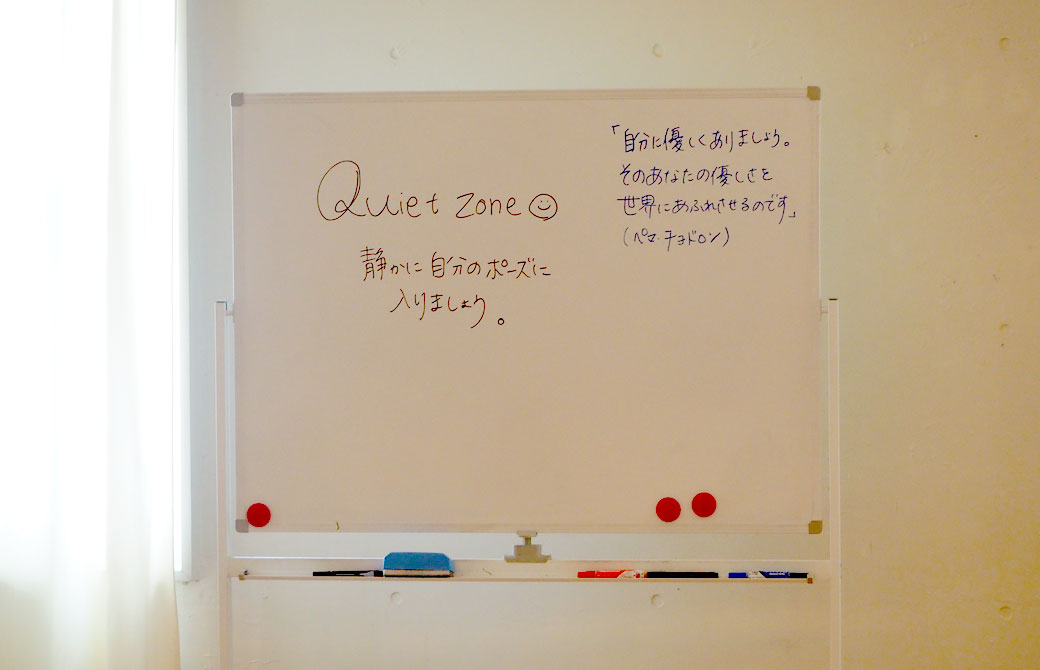 Quiet zone
静かに自分のポーズに
入りましょう。
「自分に優しくありましょう。
そのあなたの優しさを
世界にあふれさせるのです」
(ペマ・チョドロン)